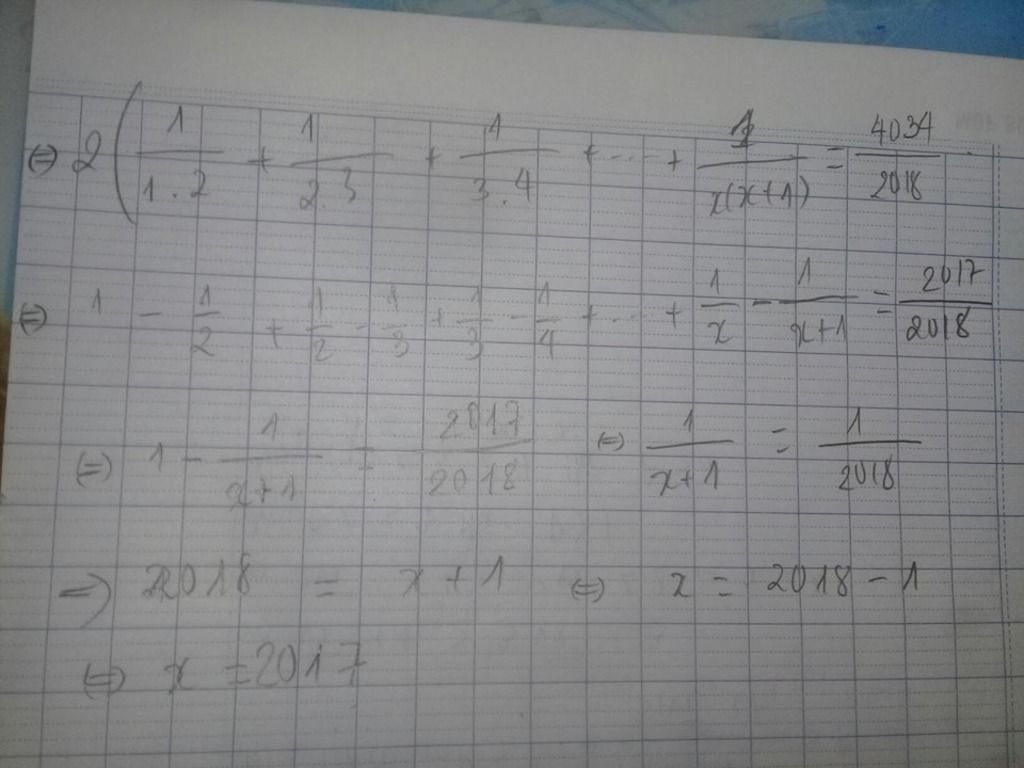 ⇔ 2 ( 1/1.2 + 1/2.3 + 1/3.4 + ... + 1/x(x+1) = 4034/2018
⇔ 1 - 1/2 + 1/2 - 1/3 + 1/3 - 1/4 + ... + 1/x - 1/x+1 = 2017/2018
⇔ 1 - 1/x+1 = 2017/2018 ⇔ 1/x+1 = 1/2018
⇒ 2018 = x + 1 ⇔ x = 2018 - 1
⇔ x = 2017